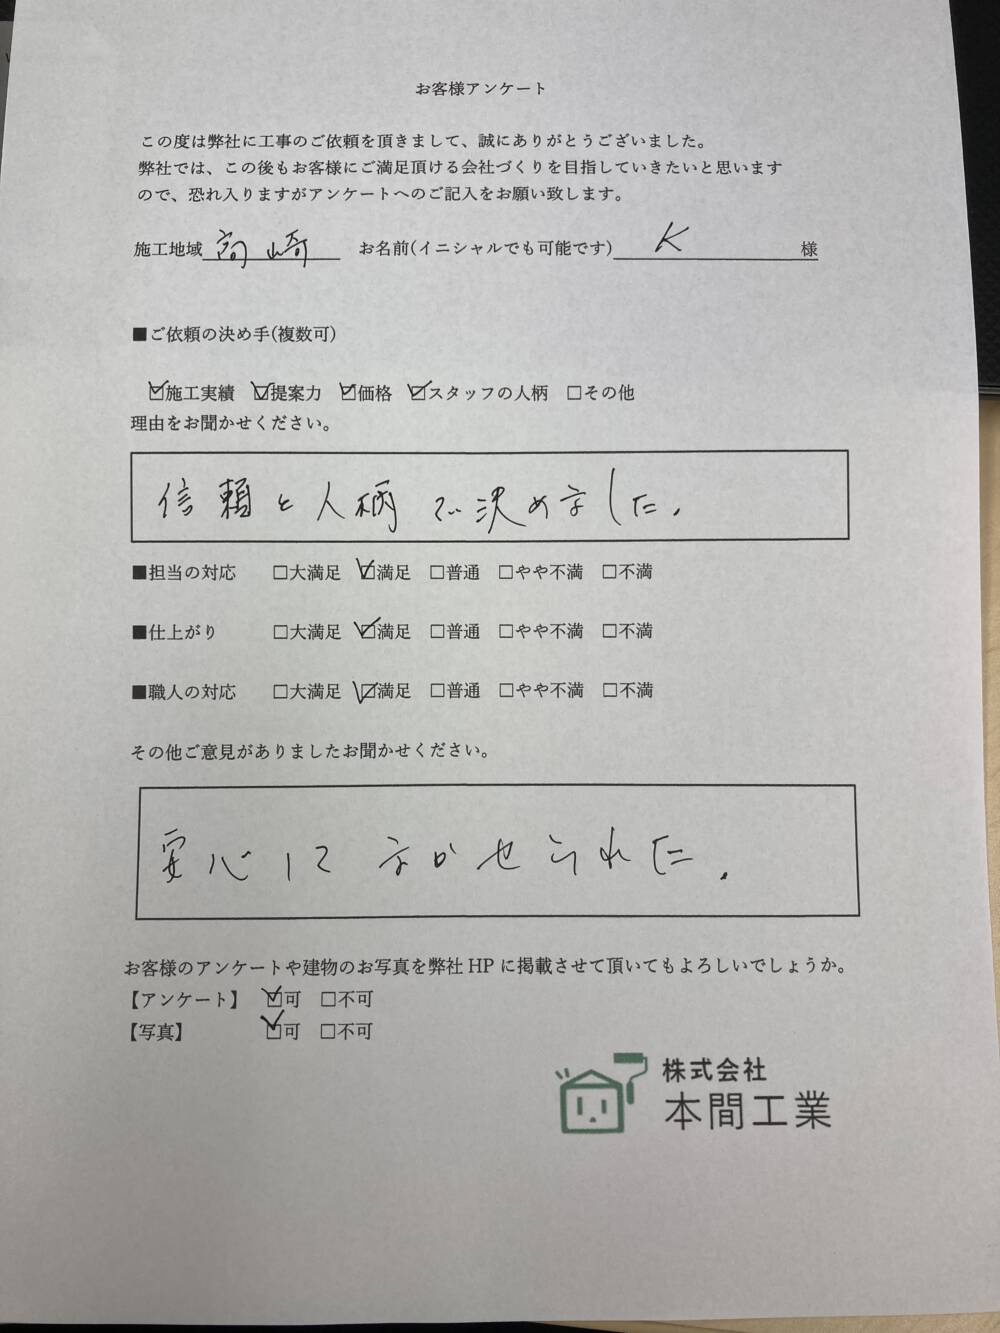 お客様アンケート
この度は弊社に工事のご依頼を頂きまして、誠にありがとうございました。
弊社では、この後もお客様にご満足頂ける会社づくりを目指していきたいと思います
ので、恐れ入りますがアンケートへのご記入をお願い致します。
施工地域 高崎 お名前(イニシャルでも可能です) K 様
■ご依頼の決め手(複数可)
☑施工実績 ☑提案力 ☑価格 ☑スタッフの人柄 □その他
理由をお聞かせください。
信頼と人柄で決めました。
■担当の対応 □大満足 ☑満足 □普通 □やや不満 □不満
■仕上がり □大満足 ☑満足 □普通 □やや不満 □不満
■職人の対応 □大満足 ☑満足 □普通 □やや不満 □不満
その他ご意見がありましたお聞かせください。
安心してまかせられた.
お客様のアンケートや建物のお写真を弊社 HP に掲載させて頂いてもよろしいでしょうか。
【アンケート】 ☑可 □不可
【写真】 ☑可 □不可
株式会社
本間工業